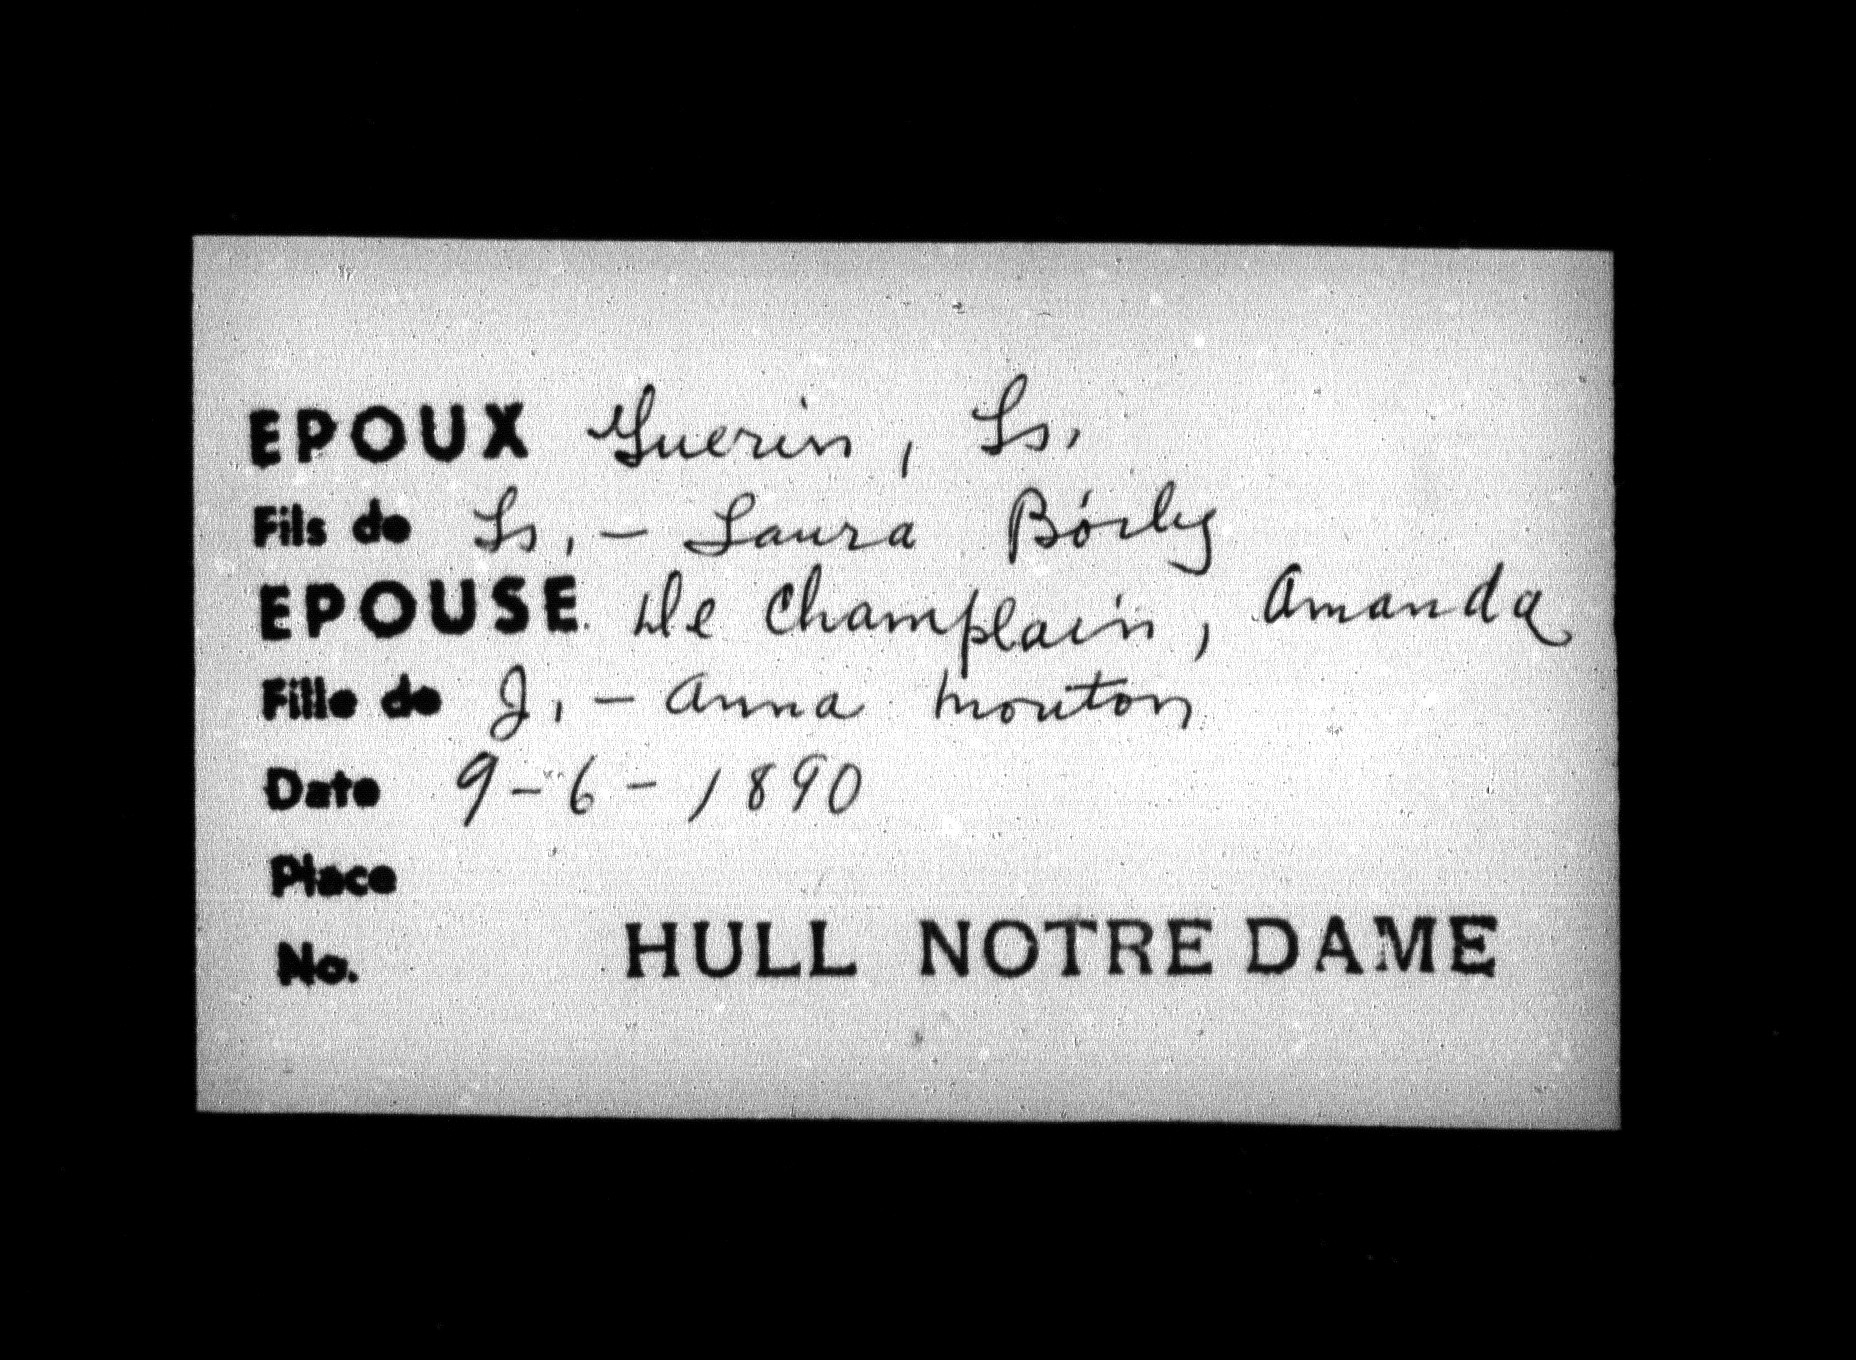 EPOUX Guerin, Ls.
Fils de Ls. - Laura
EPOUSE De Champlain, Amanda
Fille de J. - Anna Mouton
Date 9-6-1890
Place
No. HULL NOTRE DAME